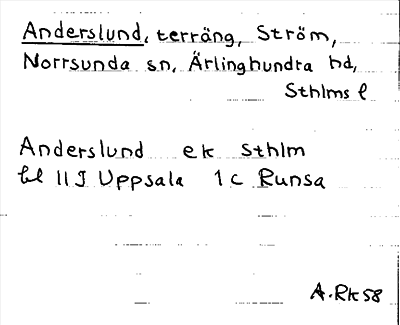 Anderslund, terräng, Ström,
Norrsunda sn, Ärlinghundra hd,
Sthlms l
Anderslund ek Sthlm
bl 11 I Uppsala 1 c Runsa
A. Rk 58